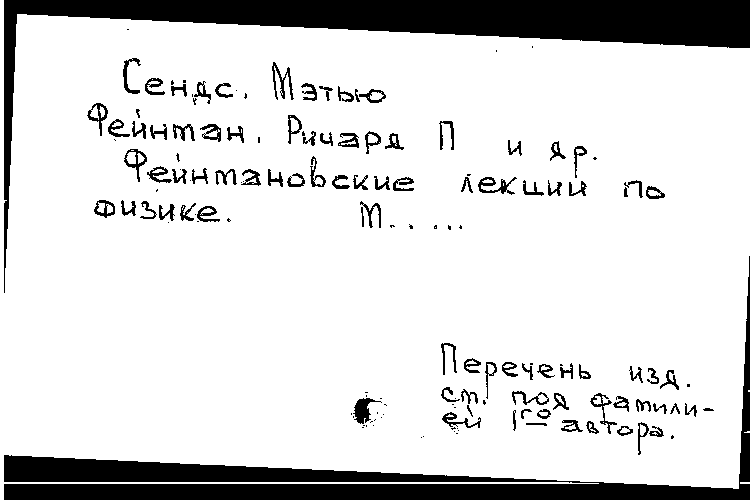 Сендс, Мэтью
Фейнман, Ричард П и др.
Фейнмановские лекции по
физике. М. . ...
Перечень изд.
см. под фамили-
ей 1го автора.